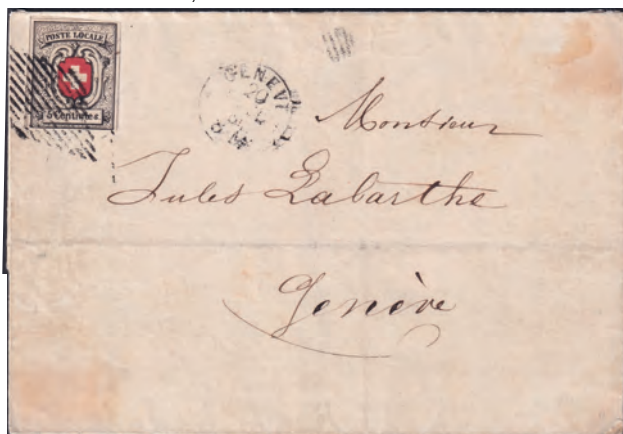 POSTE LOCALE
5 Centimes
GENEVE
20
Monsieur
Jules Labarthe
Genève